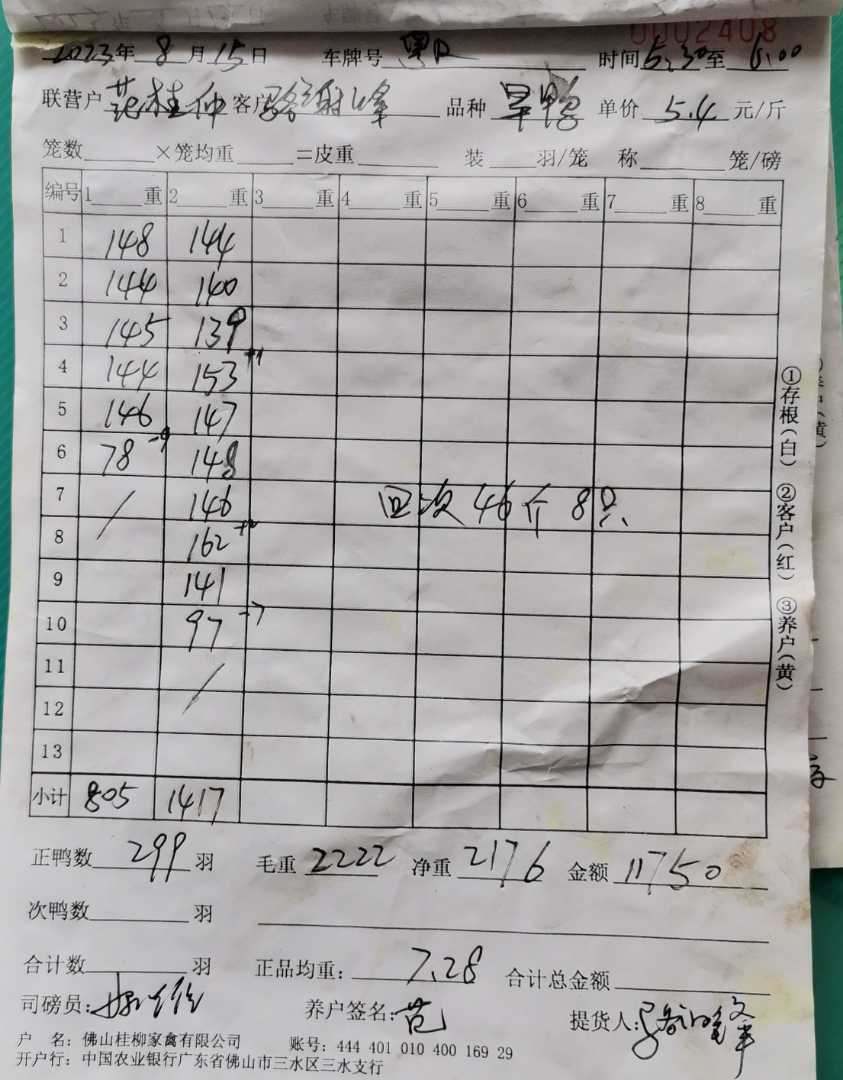 0002408
2023年 8 月 15 日 车牌号 粤 时间 5:30 至 6:00
联营户 范桂仲 客户 骆 峰 品种 旱鸭 单价 5.4 元/斤
笼数 ×笼均重 =皮重 装 羽/笼 称 笼/磅
编号 1 重 2 重 3 重 4 重 5 重 6 重 7 重 8 重
1 148 144
2 144 140
3 145 139
4 144 153 +1
5 146 147
6 78 -9 148
7 / 146 回次46斤8只
8 162 +2
9 141
10 97 -7
11 /
12
13
小计 805 1417
①存根(白) ②客户(红) ③养户(黄)
正鸭数 299 羽 毛重 2222 净重 2176 金额 11750
次鸭数 羽
合计数 羽 正品均重: 7.28 合计总金额
司磅员: 养户签名: 范 提货人:
户 名: 佛山桂柳家禽有限公司 账号: 444 401 010 400 169 29
开户行: 中国农业银行广东省佛山市三水区三水支行